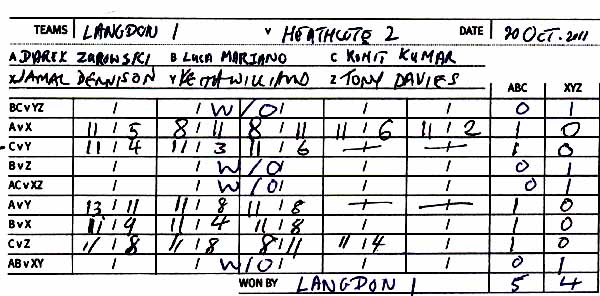 TEAMS LANGDON 1 V HEATHCOTE 2 DATE 20 OCT. 2011
A DAREK ZUROWSKI B LUCA MARIANO C ROHIT KUMAR
X JAMAL DENNISON Y KEITH WILLIAMS Z TONY DAVIES
ABC XYZ
BCvYZ / / W/O / / 0 1
AvX 11/5 8/11 8/11 11/6 11/2 1 0
CvY 11/4 11/3 11/6 / / 1 0
BvZ / / W/O / / 0 1
ACvXZ / / W/O / / 0 1
AvY 13/11 11/8 11/8 / / 1 0
BvX 11/9 11/4 11/8 / / 1 0
CvZ 11/8 11/8 8/11 11/4 / 1 0
ABvXY / / W/O / / 0 1
WON BY LANGDON 1 5 4